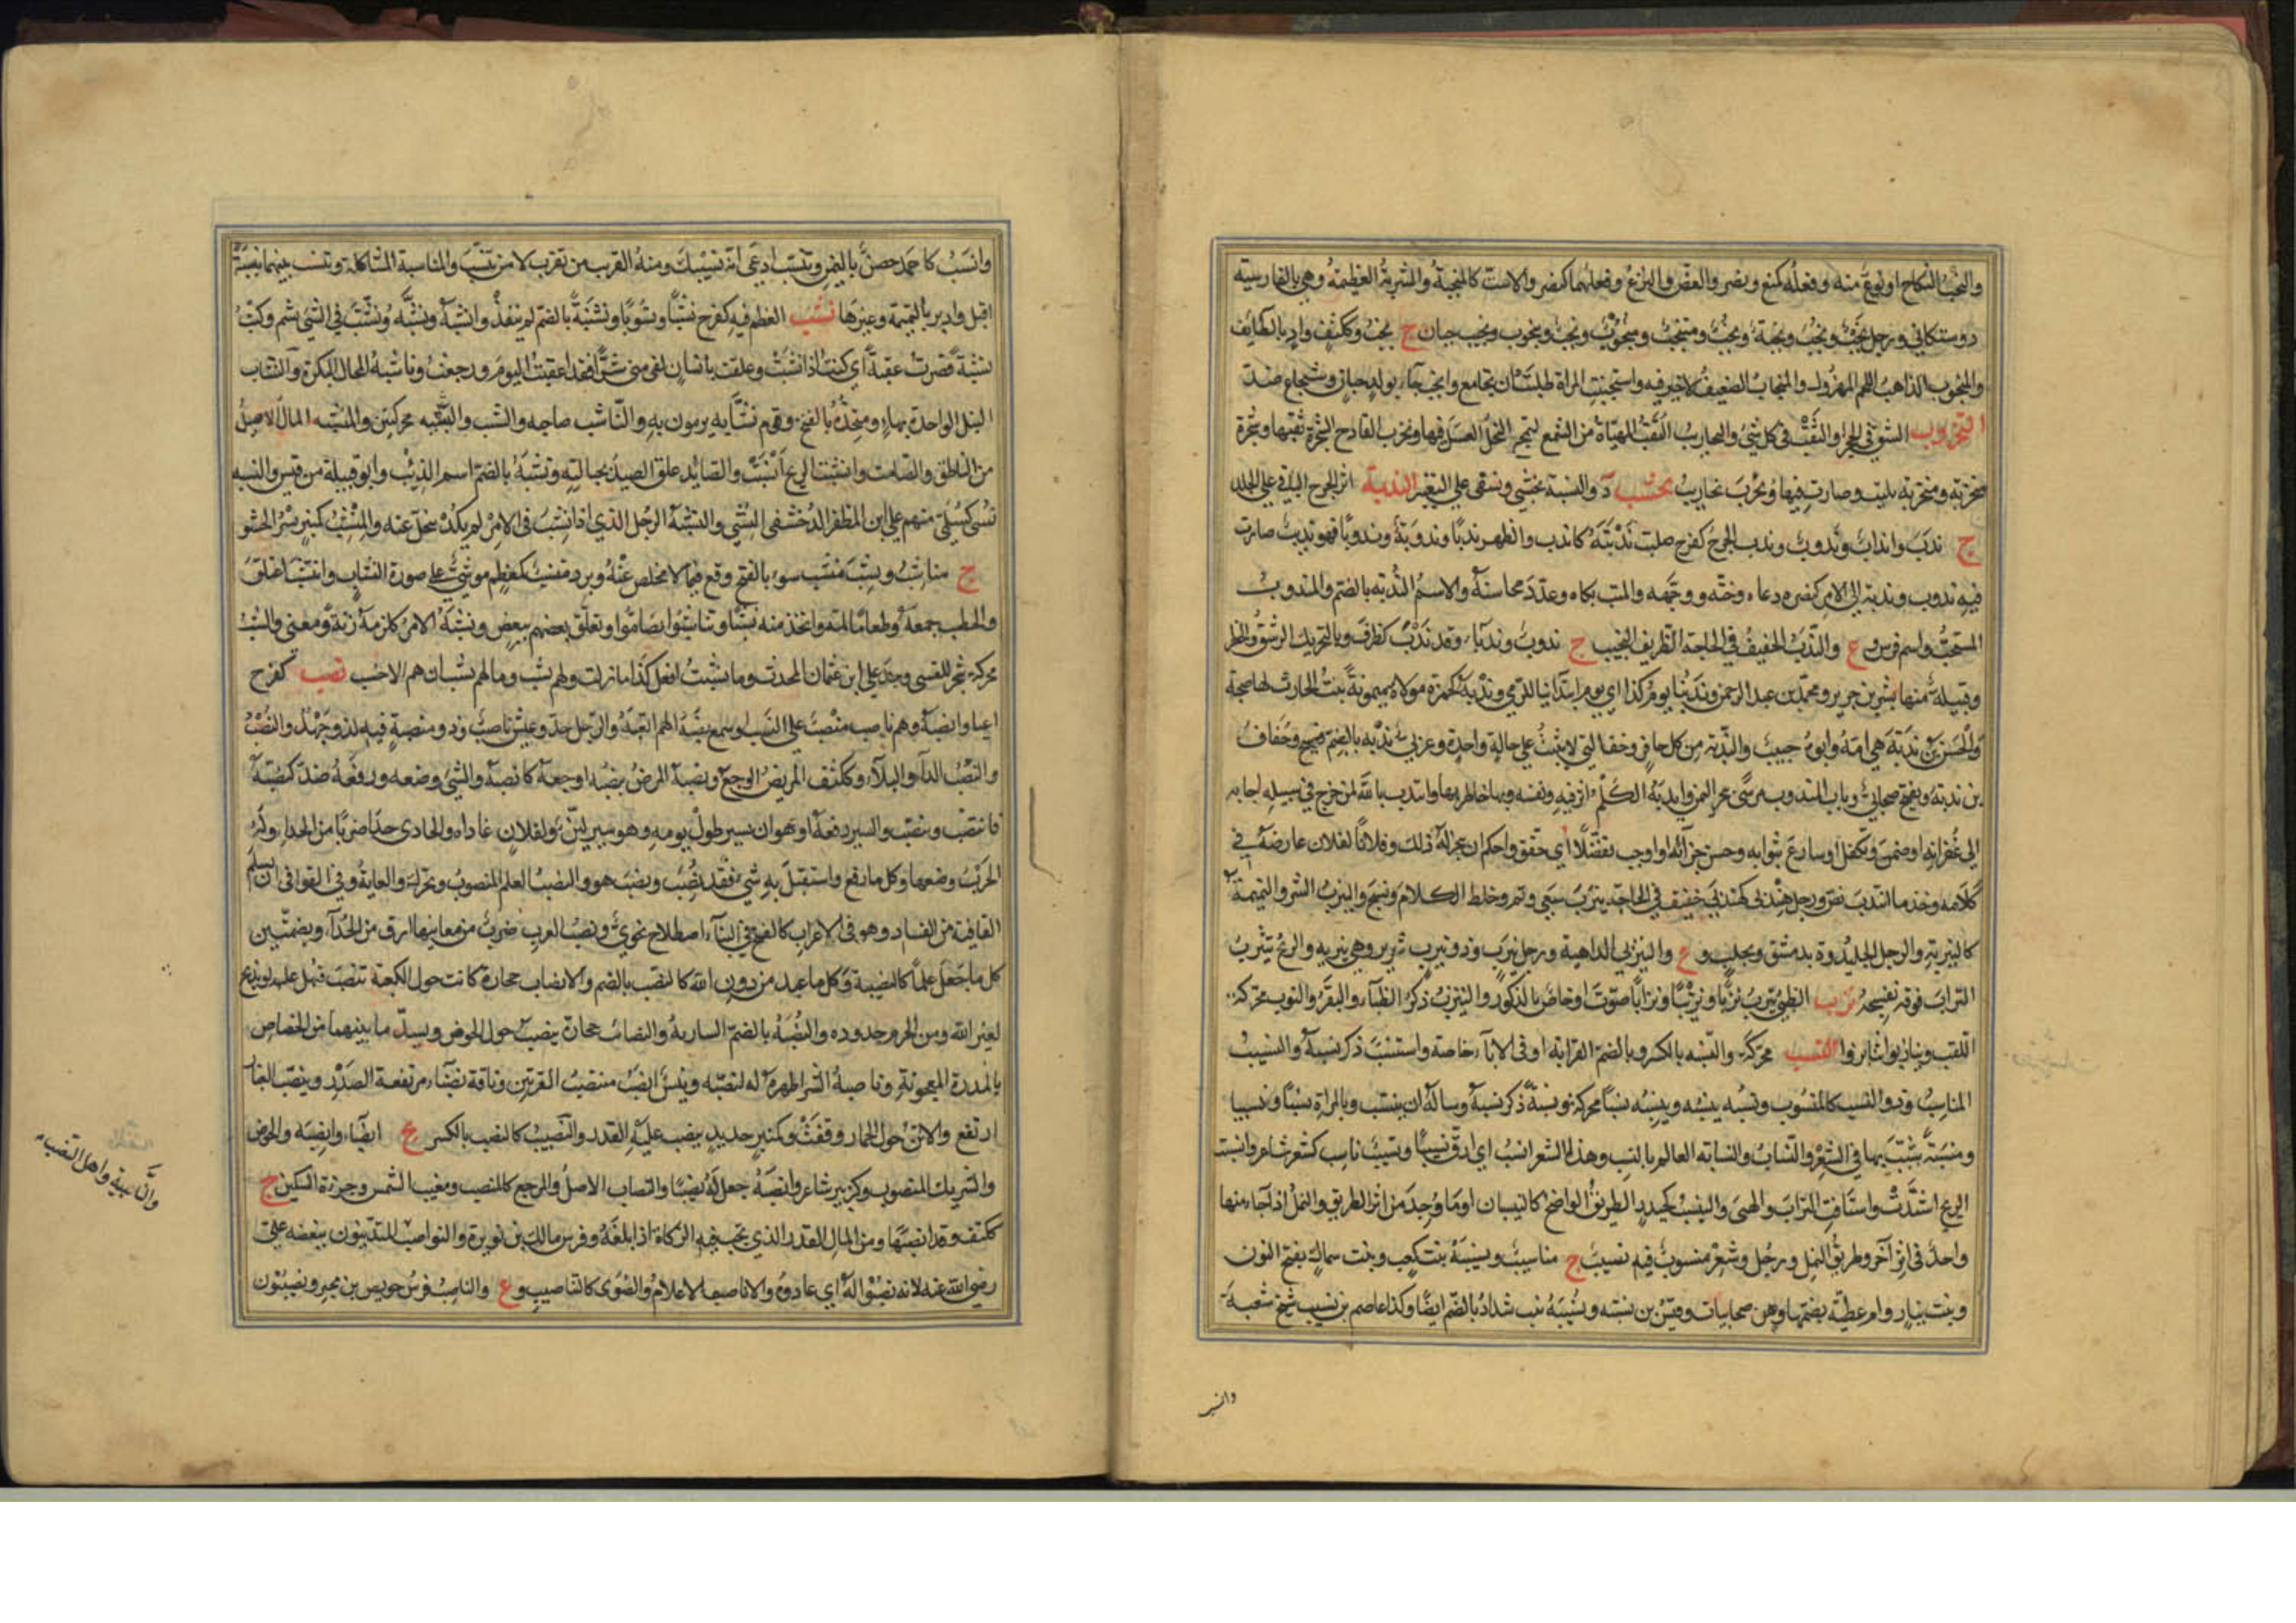 والنخب النكاح او نوع منه وفعله كمنع ونصر والعض والنزع وفعلهما كنصر والاست كالمنخبة والشربة العظيمة وهي بالفارسية
دوستكاني ورجل نخب ونخب ونخبة ونخب ومنتخب ومنخوب ونخب وينخوب ونخيب جبان ج نخب وككتف واد بالطايف
والمنخوب الذاهب اللحم المهزول والمنخاب الضعيف لا خير فيه واستنخبت المراة طلبت ان تجامع وانخب جاء بولد جبان وشجاع ضد
النخروب الشق في الحجر او الثقب في كل شئ والنخاريب الثقب المهياة من الشمع لتمج النحل العسل فيها ونخرب القادح الشجرة ثقبها وشجرة
منخربة ومنخربة بليت وصارت فيها نخاريب نخشب د والنسبة نخشبي ونسفي على التغيير الندبة اثر الجرح الباقي على الجلد
ج ندب وانداب وندوب وندب الجرح كفرح صلبت ندبته كاندب والظهر ندبا وندوبة وندوبا فهو نديب صارت
فيه ندوب وندبه الى الامر كنصره دعاه وحثه ووجهه والميت بكاه وعدد محاسنه والاسم الندبة بالضم والمندوب
المستحب واسم فرس و ع والندب الخفيف في الحاجة الظريف النجيب ج ندوب وندباء وقد ندب كظرف وبالتحريك الرشق والخطر
وقبيلة منها بشر بن جرير ومحمد بن عبد الرحمن وندبنا يوم كذا اي يوم ابتدانا للرمي وندبة كحمزة مولاة ميمونة بنت الحارث لها صحبة
والحسن بن ندبة هي امه وابوه حبيب والندبة من كل حافر وخف التي لا تثبت على حالة واحدة وعربي ندبة بالضم فصيح وخفاف
بن ندبة ويفتح صحابي وباب المندب مرسى ببحر اليمن واندبه الكلم اثر فيه ونفسه وبها خاطر بها وانتدب الله لمن خرج في سبيله اجابه
الى غفرانه او ضمن وتكفل او سارع بثوابه وحسن جزائه او اوجب تفضلا اي حقق واحكم ان ينجز له ذلك وفلانا لفلان عارضه في
كلامه وخذ ما انتدب نض ورجل هندبي كهندبي خفيف في الحاجة نيرب سعى ونم وخلط الكلام ونسج والنيرب الشر والنميمة
كالنيربة والرجل الجليد وة بدمشق وبحلب و ع والنيربي الداهية ورجل نيرب وذو نيرب شرير وهي نيربة والريح تنيرب
التراب فوقه تنسجه نزب الظبي ينزب نزبا ونزيبا ونزابا صوت او خاص بالذكور والنيزب ذكر الظباء والبقر والنزب محركة
اللقب وتنازبوا تنابزوا النسب محركة والنسبة بالكسر وبالضم القرابة او في الاباء خاصة واستنسب ذكر نسبه والنسيب
المناسب وذو النسب كالمنسوب ونسبه ينسبه وينسبه نسبا محركة ونسبة ذكر نسبه وساله ان ينتسب وبالمراة نسبا ونسيبا
ومنسبة شبب بها في الشعر والنساب والنسابة العالم بالنسب وهذا الشعر انسب اي ارق نسيبا ونسيب ناسب كشعر شاعر وانسبت
الريح اشتدت واستافت التراب والحصى والنيسب كحيدر الطريق الواضح كالنيسبان او ما وجد من اثر الطريق والنمل اذا جاء منها
واحد في اثر آخر وطريق النمل ورجل وشعر منسوب فيه نسيب ج مناسيب ونسيبة بنت كعب وبنت سماك بفتح النون
وبنت نيار وام عطية بضمها وهن صحابيات وقيس بن نسبة ونسيبة بنت شداد بالضم ايضا وكذا عاصم بن نسيب شيخ شعبة
وانسب
وانسب كاحمد حصن باليمن وتنسب ادعى انه نسيبك ومنه القريب من تقرب لا من تنسب والمناسبة المشاكلة وتنسب بينهما نيسبة
اقبل وادبر بالنميمة وغيرها نشب العظم فيه كفرح نشبا ونشوبا ونشبة بالضم لم ينفذ وانشبه ونشبه ونشب في الشئ نشم وكنت
نشبة فصرت عقبة اي كنت اذا نشبت وعلقت بانسان لقى مني شرا فقد اعقبت اليوم ورجعت وناشبة المحال البكرة والنشاب
النبل الواحدة بهاء ومتخذه بالفتح وقوم نشابة يرمون به والناشب صاحبه والنشب والنشبة محركتين والمنشبة المال الاصيل
من الناطق والصامت وانشبت الريح انسبت والصائد علق الصيد بحبالته ونشبة بالضم اسم الذئب وابو قبيلة من قيس والنسبة
نشبي كسلمي منهم علي ابن المظفر الدمشقي النشبي والنشبة الرجل الذي اذا نشب في الامر لم يكد ينحل عنه والمنشب كمنبر بسر الخشو
ج مناشب ونشب منشب سوء بالفتح وقع فيما لا مخلص عنه وبرد منشب كمعظم موشي على صورة النشاب وانتشب اعتلق
والحطب جمعه وطعاما لمه واتخذ منه نشبا وتناشبوا تضاموا وتعلق بعضهم ببعض ونشبه الامر كلزمه زنة ومعنى والنشب
محركة شجر للقسي وجد علي ابن عثمان المحدث وما نشبت افعل كذا ما زلت ولهم نشب وما لهم نشبان هم الاحسب نصب كفرح
اعيا وانصبه وهم ناصب منصب على النسب او سمع نصبه الهم اتعبه والرجل جد وعيش ناصب وذو منصبة فيه كد وجهد والنصب
والنصب الداء والبلاء وككتف المريض الوجع ونصبه المرض ينصبه اوجعه كانصبه والشئ وضعه ورفعه ضد كنصبه
فانتصب وتنصب والسير رفعه او هو ان يسير طول يومه وهو سير لين ولفلان عاداه والحادي حدا ضربا من الحداء وله
الحرب وضعها وكل ما رفع واستقبل به شئ فقد نصب ونصب هو والنصب العلم المنصوب ويحرك والغاية وفي القوافي ان تسلم
القافية من الفساد وهو في الاعراب كالفتح في البناء اصطلاح نحوي ونصب العرب ضرب من مغانيها ارق من الحداء وبضمتين
كل ما جعل علما كالنصيبة وكل ما عبد من دون الله كالنصب بالضم والانصاب حجارة كانت حول الكعبة تنصب فيهل عليها ويذبح
لغير الله ومن الحرم حدوده والنصبة بالضم السارية والنصائب حجارة ينصب حول الحوض ويسد ما بينهما من الخصاص
بالمدرة المعجونة وناصبه الشر اظهره له كنصبه وتيس انصب منتصب القرنين وناقة نصباء مرتفعة الصدر وتنصب الغبار
ارتفع والاتن حول الحمار وقفت وكمنبر حديد ينصب عليه القدر والنصيب الحظ كالنصب بالكسر ج انصباء وانصبة والحوض
والشريك المنصوب وكزبير شاعر وانصبه جعل له نصيبا والنصاب الاصل والمرجع كالمنصب ومغيب الشمس وجزءة السكين ج
ككتب وقد انصبتها ومن المال القدر الذي تجب فيه الزكاة اذا بلغه وفرس مالك بن نويرة والنواصب المتدينون ببغضه علي
رضي الله عنه لانهم نصبوا له اي عادوه والاناصيب الاعلام والصوى كالتناصيب و ع والناصب فرس حويص بن بجير ونصيبون
والناصبية واهل النصب